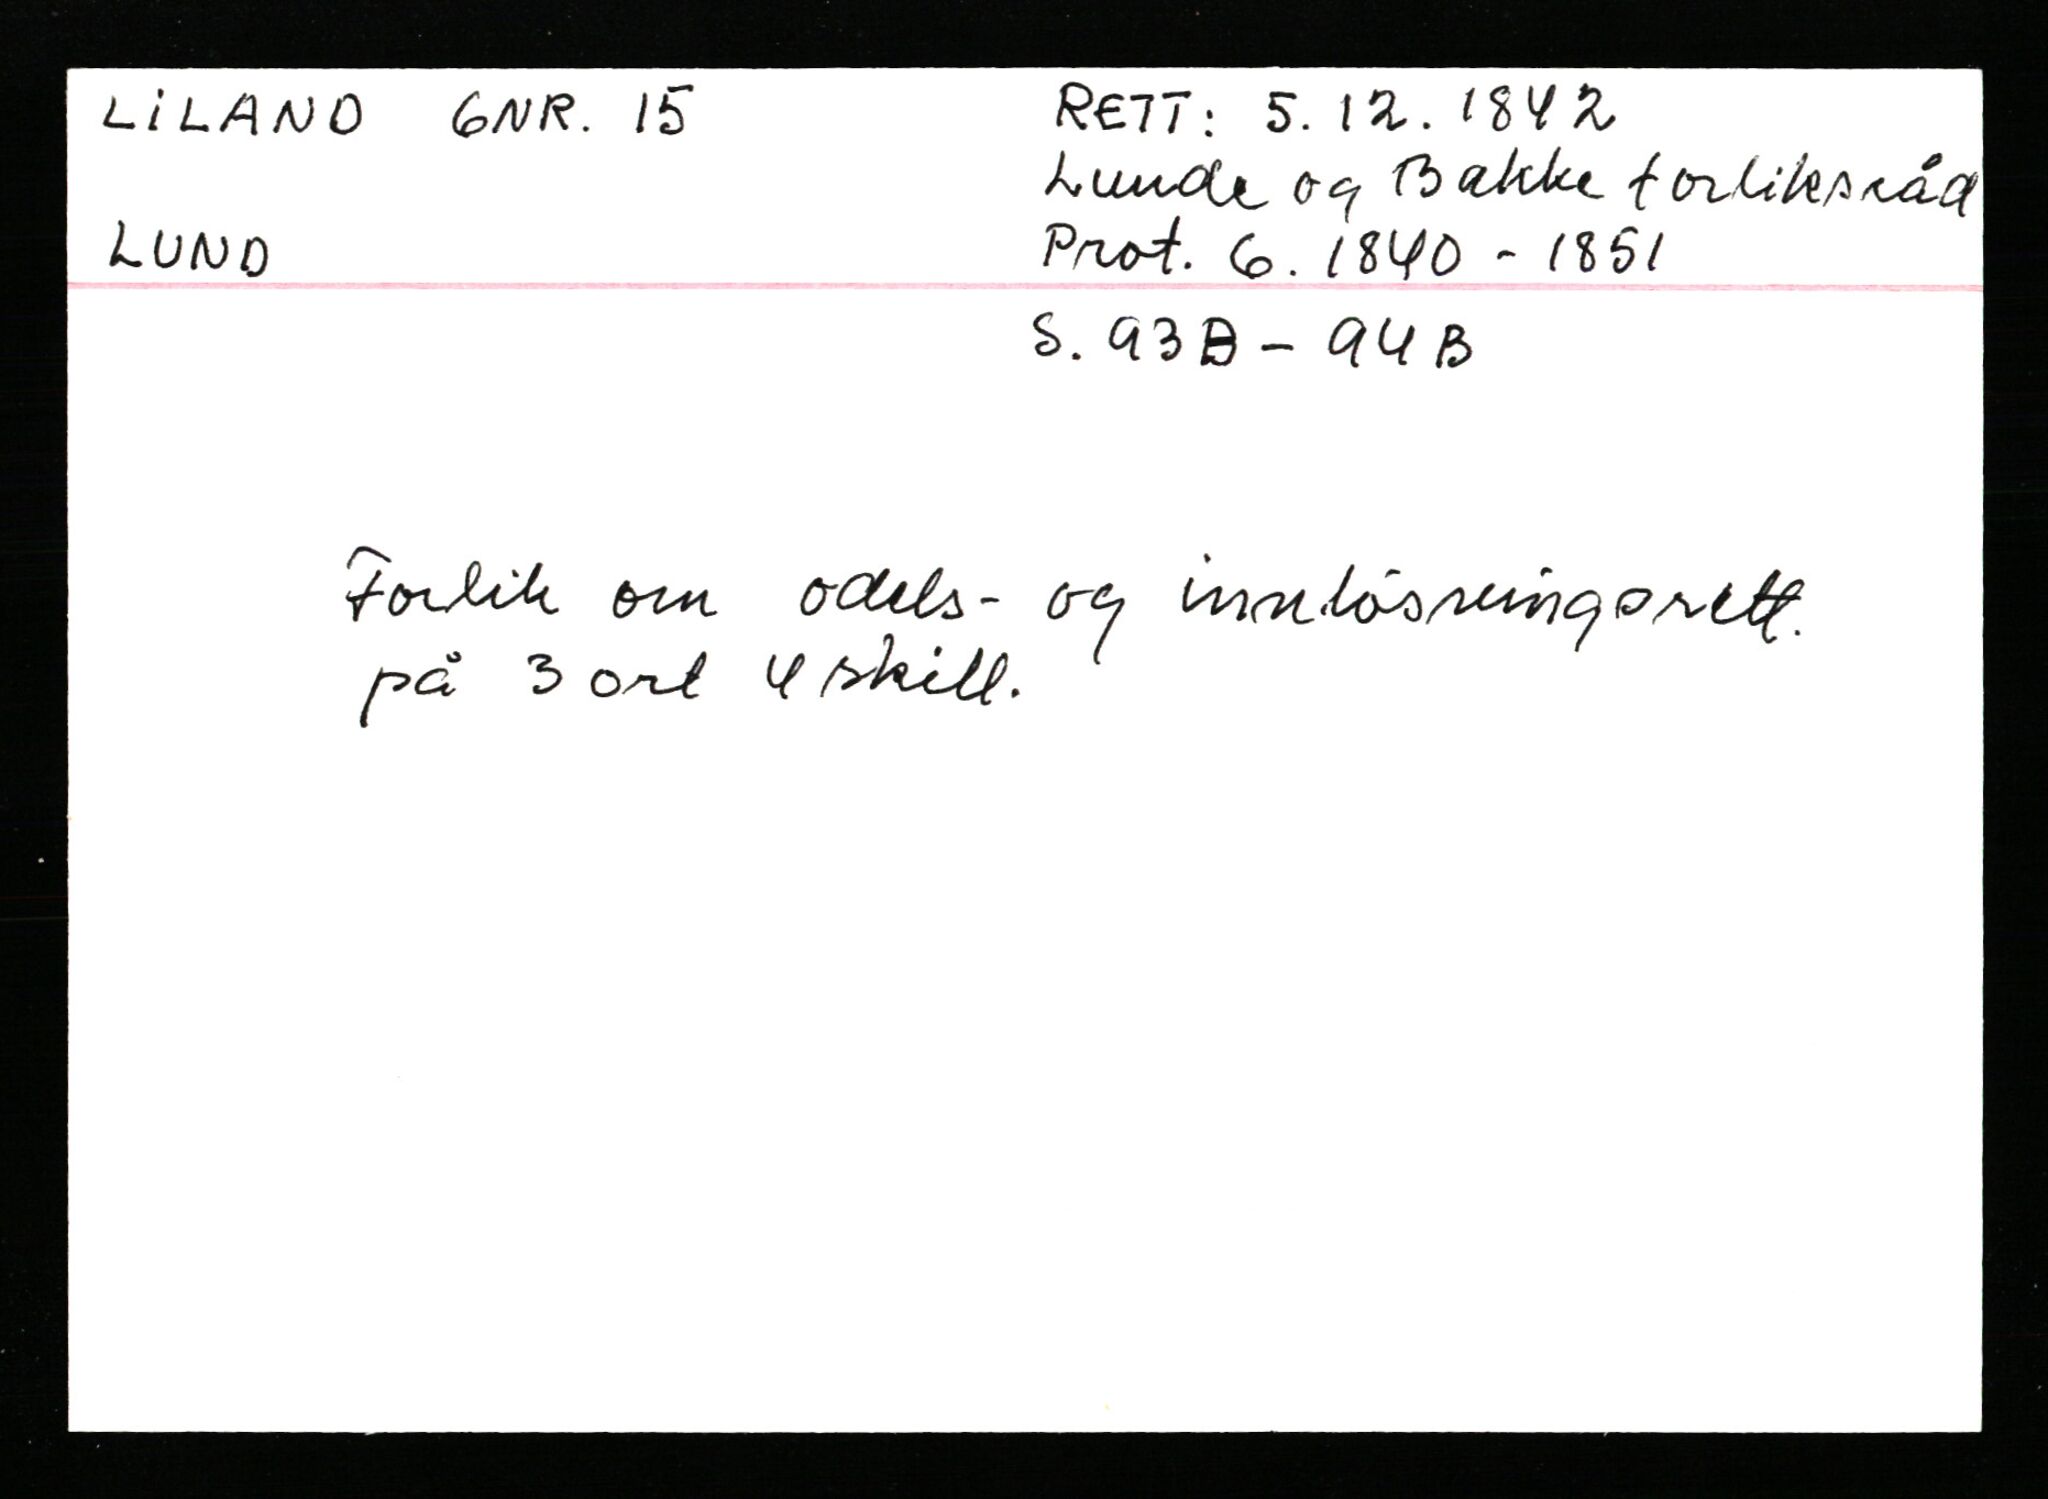 LILAND GNR. 15
LUND
RETT: 5.12.1842
Lunde og Bakke forliksråd
Prot. 6. 1840 - 1851
S. 93B - 94B
Forlik om odels- og innlösningsrett.
på 3 ort 4 skill.